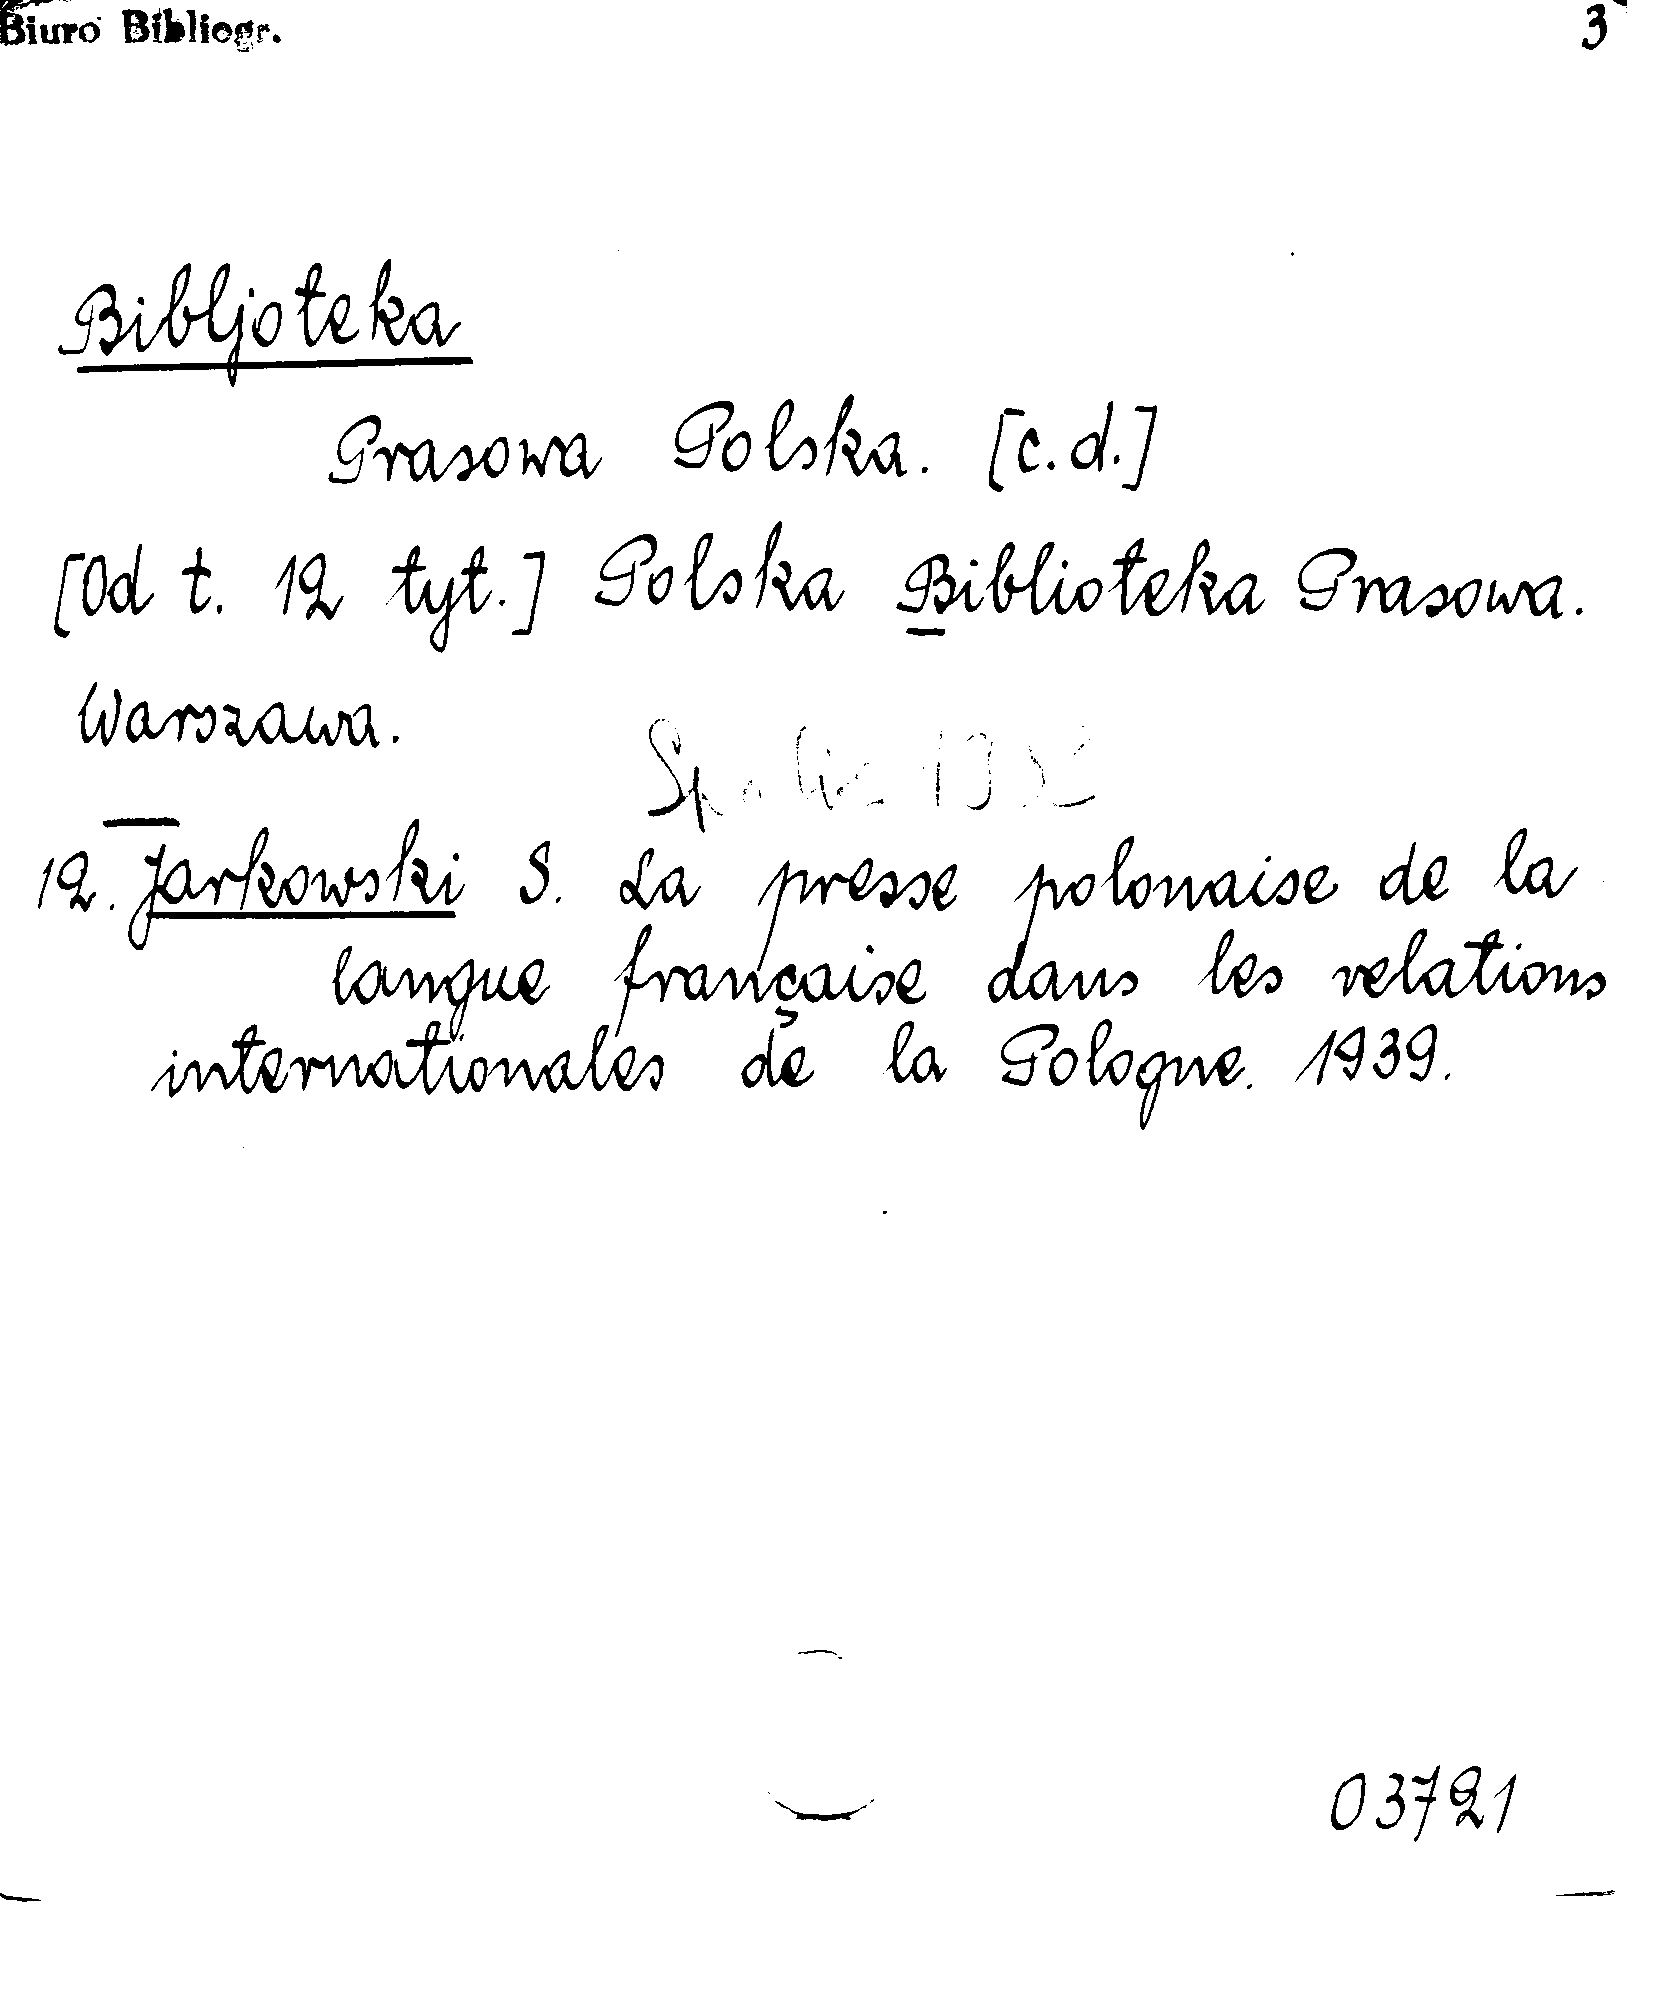 Biuro Bibliogr.
3
Bibljoteka
Prasowa Polska. [c.d.]
[Od t. 12 tyt.] Polska Biblioteka Prasowa.
Warszawa.
12. Jarkowski S. La presse polonaise de la
langue française dans les relations
internationales de la Pologne. 1939.
03721